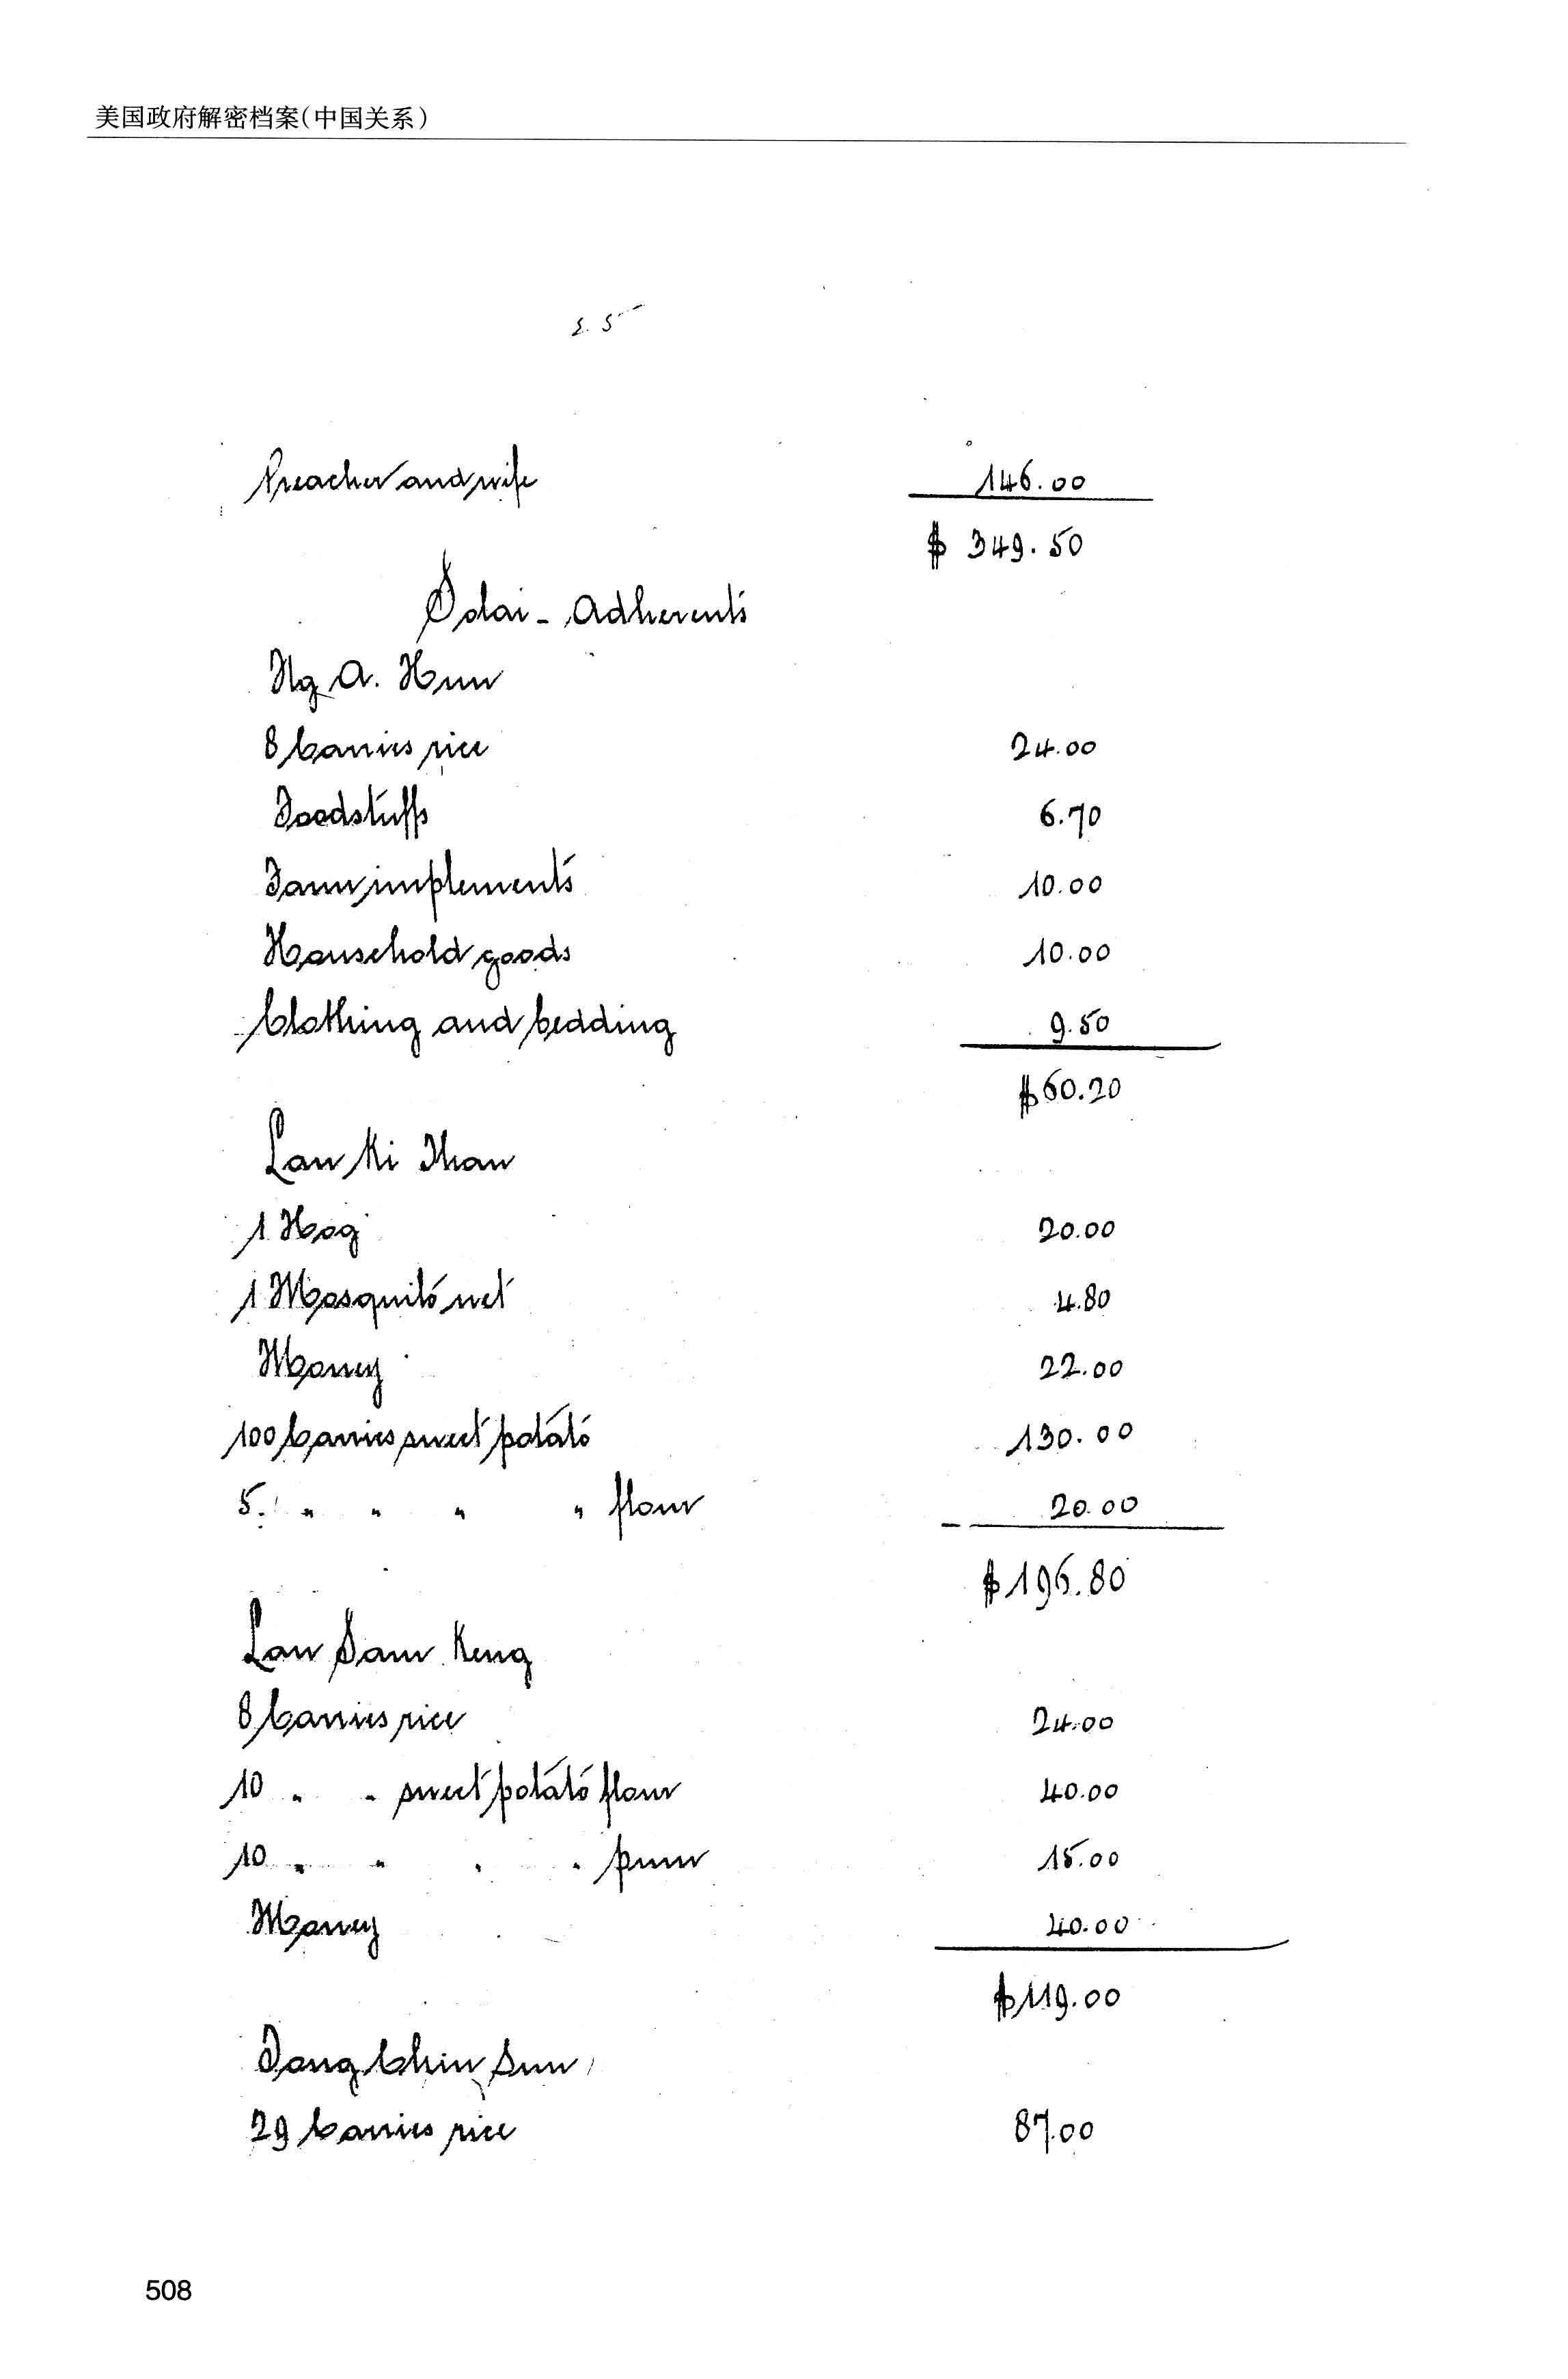 美国政府解密档案(中国关系)
Preacher and wife 146.00
$ 349.50
Solai - Adherents
Ng A. Hun
8 Carries rice 24.00
Foodstuffs 6.70
Farm implements 10.00
Household goods 10.00
Clothing and bedding 9.50
$60.20
Lau Ki Than
1 Hog 20.00
1 Mosquito net 4.80
Money 22.00
100 Carries sweet potato 130.00
5. " " " " flour 20.00
$196.80
Lau Sam Keng
8 Carries rice 24.00
10 " " sweet potato flour 40.00
10 " " " " 15.00
Money 40.00
$119.00
Tang Chin Sun
29 Carries rice 87.00
508